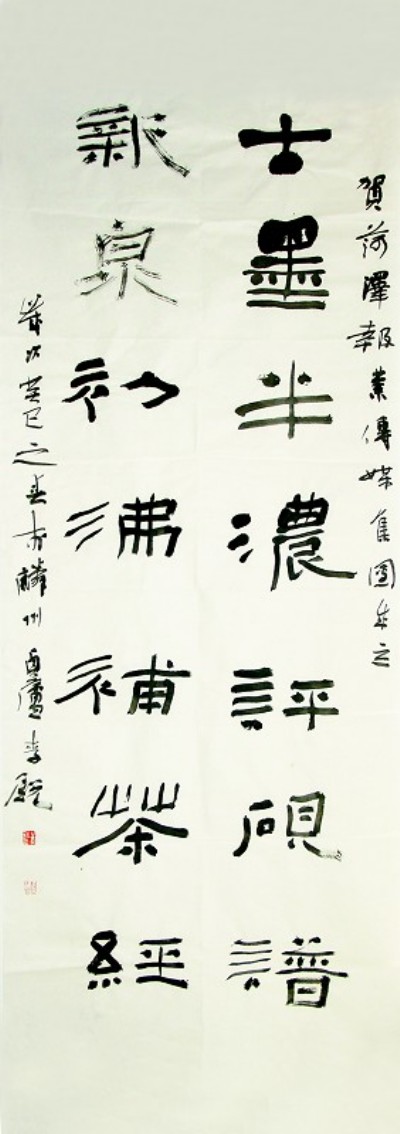 賀菏澤報業傳媒集團成立
古墨半濃評硯譜
新泉初沸補茶經
歲次癸巳之春於麟州 廬李